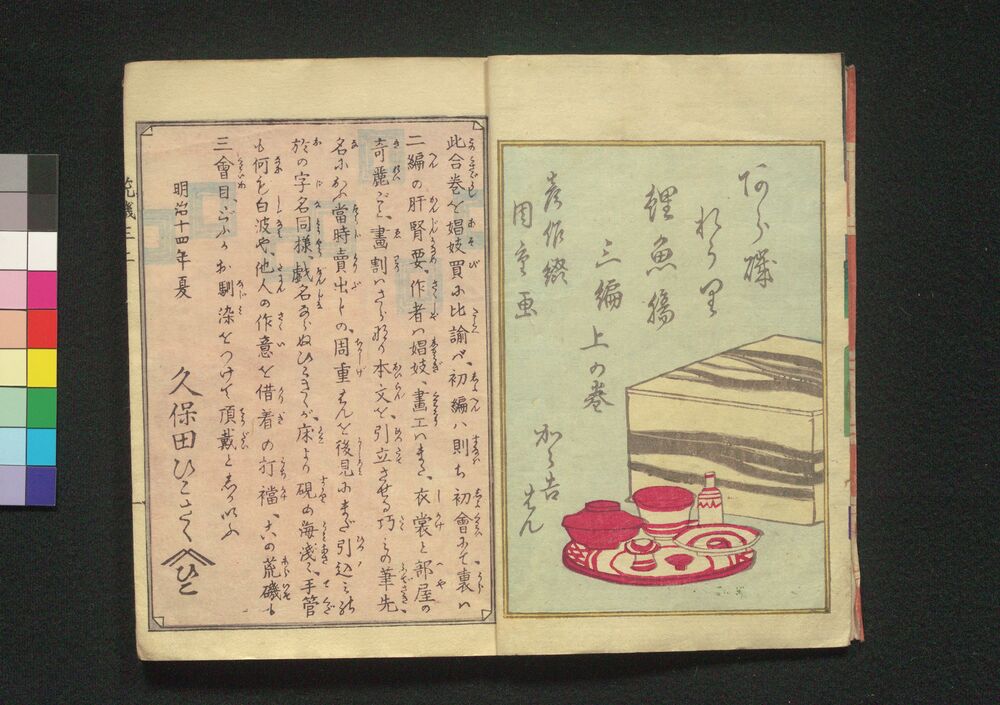 あら磯
れうり
鯉魚腸
三編
上の巻
彦作綴
周重画
加゛吉
はん
此合巻を娼妓買に比諭バ、初編ハ則ち初會にて、裏ハ
二編の肝腎要、作者ハ娼妓、畫工ハまた、衣裳と部屋の
奇麗ごと、畫割ハさら也、本文を、引立させる巧みの筆先、
名におふ當時賣出しの、周重はんを後見にまだ引込
於の字名同様戯名ならぬひこさくが、床より硯の海淺く、手管
も何も白波や、他人の作意を借着の打襠、六の荒磯も
三會目、どふかお馴染をつけて頂戴と志か以ふ
明治十四年夏
久保田ひこさく
ひこ
荒磯三 上